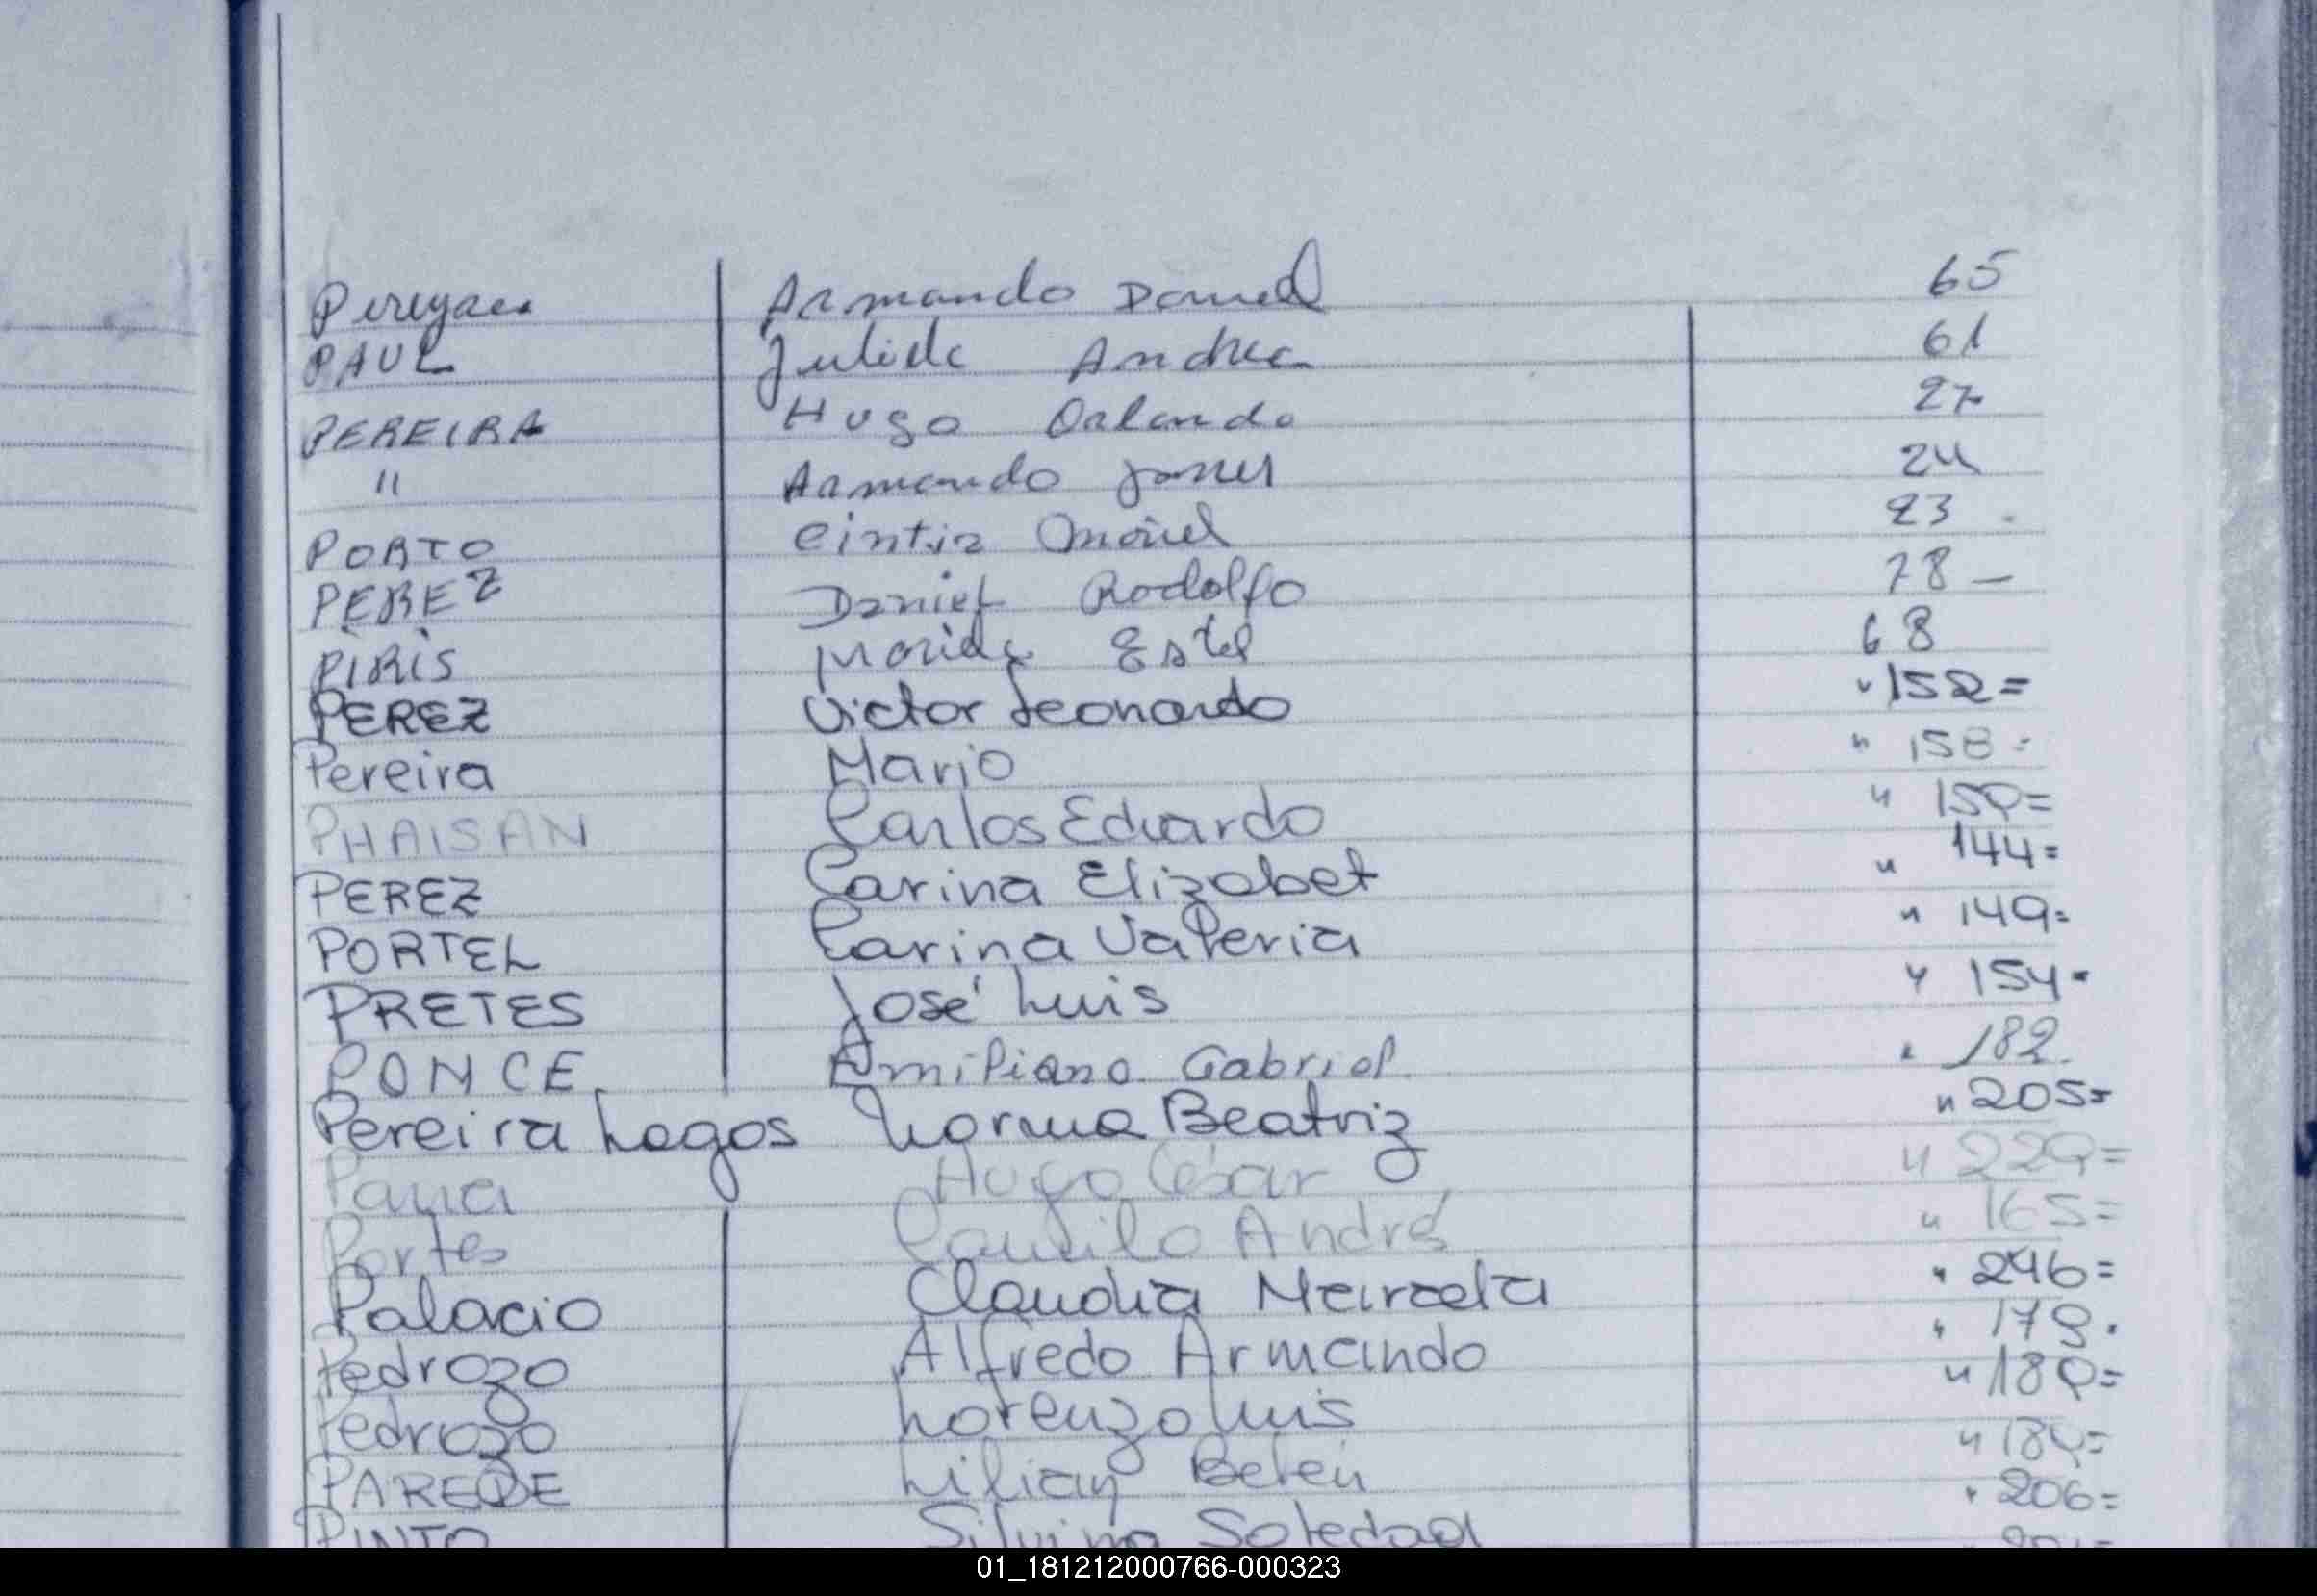 Pereyra Armando Daniel 65
PAUL Julide Andrea 61
PEREIRA Hugo Orlando 27
" Armando Javier 24
PORTO Cintia 23
PEREZ Daniel Rodolfo 78 —
PIRIS Estel 68
PEREZ Victor Leonardo " 152=
Pereira Mario " 158=
PHAISAN Carlos Eduardo " 159=
PEREZ Carina Elizabet " 144=
PORTEL Carina Valeria " 149=
PRETES José Luis " 154=
PONCE. Emiliano Gabriel. " 182.
Pereira Lagos Norma Beatriz " 205=
Hugo César " 229=
Portes Camilo André " 165=
Palacio Claudia Marcela " 246=
Pedrozo Alfredo Armando " 179=
Pedrozo Lorenzo Luis " 189=
PAREDE Lilian Belén " 184=
PINTO Silvina Soledad " 206=
01_181212000766-000323